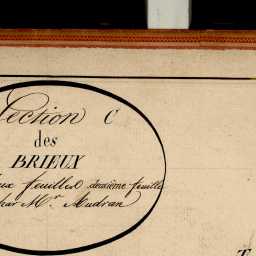 Section C
des
BRIEUX
feuilles deuxième feuille
par Mr. Mudran
T